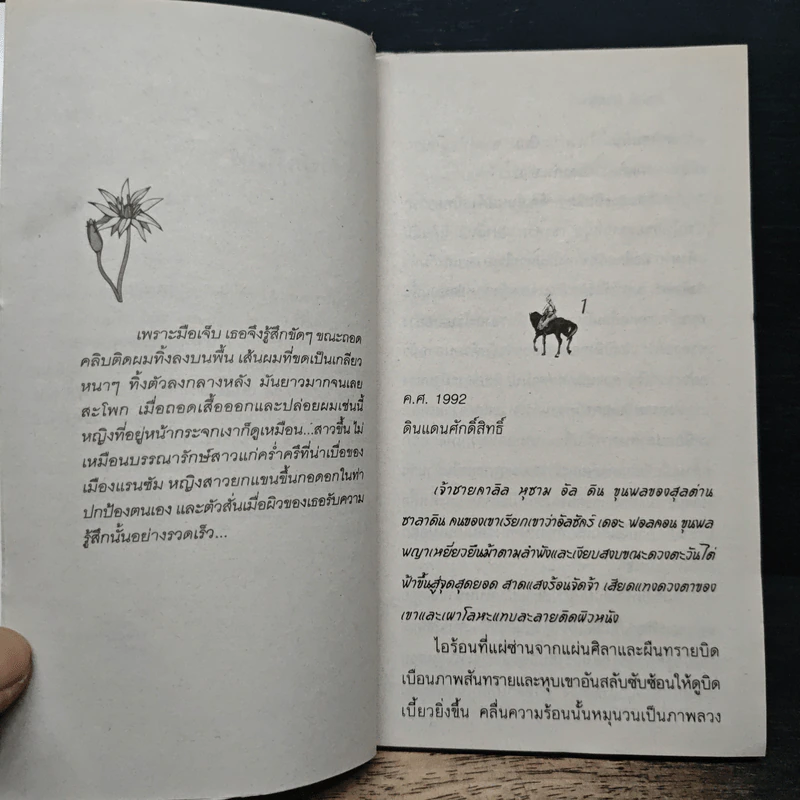 เพราะมือเจ็บ เธอจึงรู้สึกขัดๆ ขณะถอด
คลิบติดผมทิ้งลงบนพื้น เส้นผมที่ขดเป็นเกลียว
หนาๆ ทิ้งตัวลงกลางหลัง มันยาวมากจนเลย
สะโพก เมื่อถอดเสื้อออกและปล่อยผมเช่นนี้
หญิงที่อยู่หน้ากระจกเงาก็ดูเหมือน...สาวขึ้น ไม่
เหมือนบรรณารักษ์สาวแก่คร่ำครึที่น่าเบื่อของ
เมืองแรนซัม หญิงสาวยกแขนขึ้นกอดอกในท่า
ปกป้องตนเอง และตัวสั่นเมื่อผิวของเธอรับความ
รู้สึกนั้นอย่างรวดเร็ว...
1
ค.ศ. 1992
ดินแดนศักดิ์สิทธิ์
เจ้าชายคาลิล หุซาม อัล ดิน ขุนพลของสุลต่าน
ซาลาดิน คนของเขาเรียกเขาว่าอัลซัคร์ เดอะ ฟอลคอน ขุนพล
พญาเหยี่ยวยืนม้าตามลำพังและเงียบสงบขณะดวงตะวันไต่
ฟ้าขึ้นสู่จุดสุดยอด สาดแสงร้อนจัดจ้า เสียดแทงดวงตาของ
เขาและเผาโลหะแทบละลายติดผิวหนัง
ไอร้อนที่แผ่ซ่านจากแผ่นศิลาและผืนทรายบิด
เบือนภาพสันทรายและหุบเขาอันสลับซับซ้อนให้ดูบิด
เบี้ยวยิ่งขึ้น คลื่นความร้อนนั้นหมุนวนเป็นภาพลวง